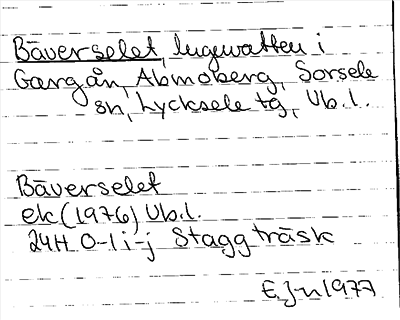 Bäverselet, lugnvatten i
Gargån, Abmoberg, Sorsele
sn, Lycksele tg, Vb.l.
Bäverselet
ek (1976) Vb.l.
24H 0-1 i-j Staggträsk
1977